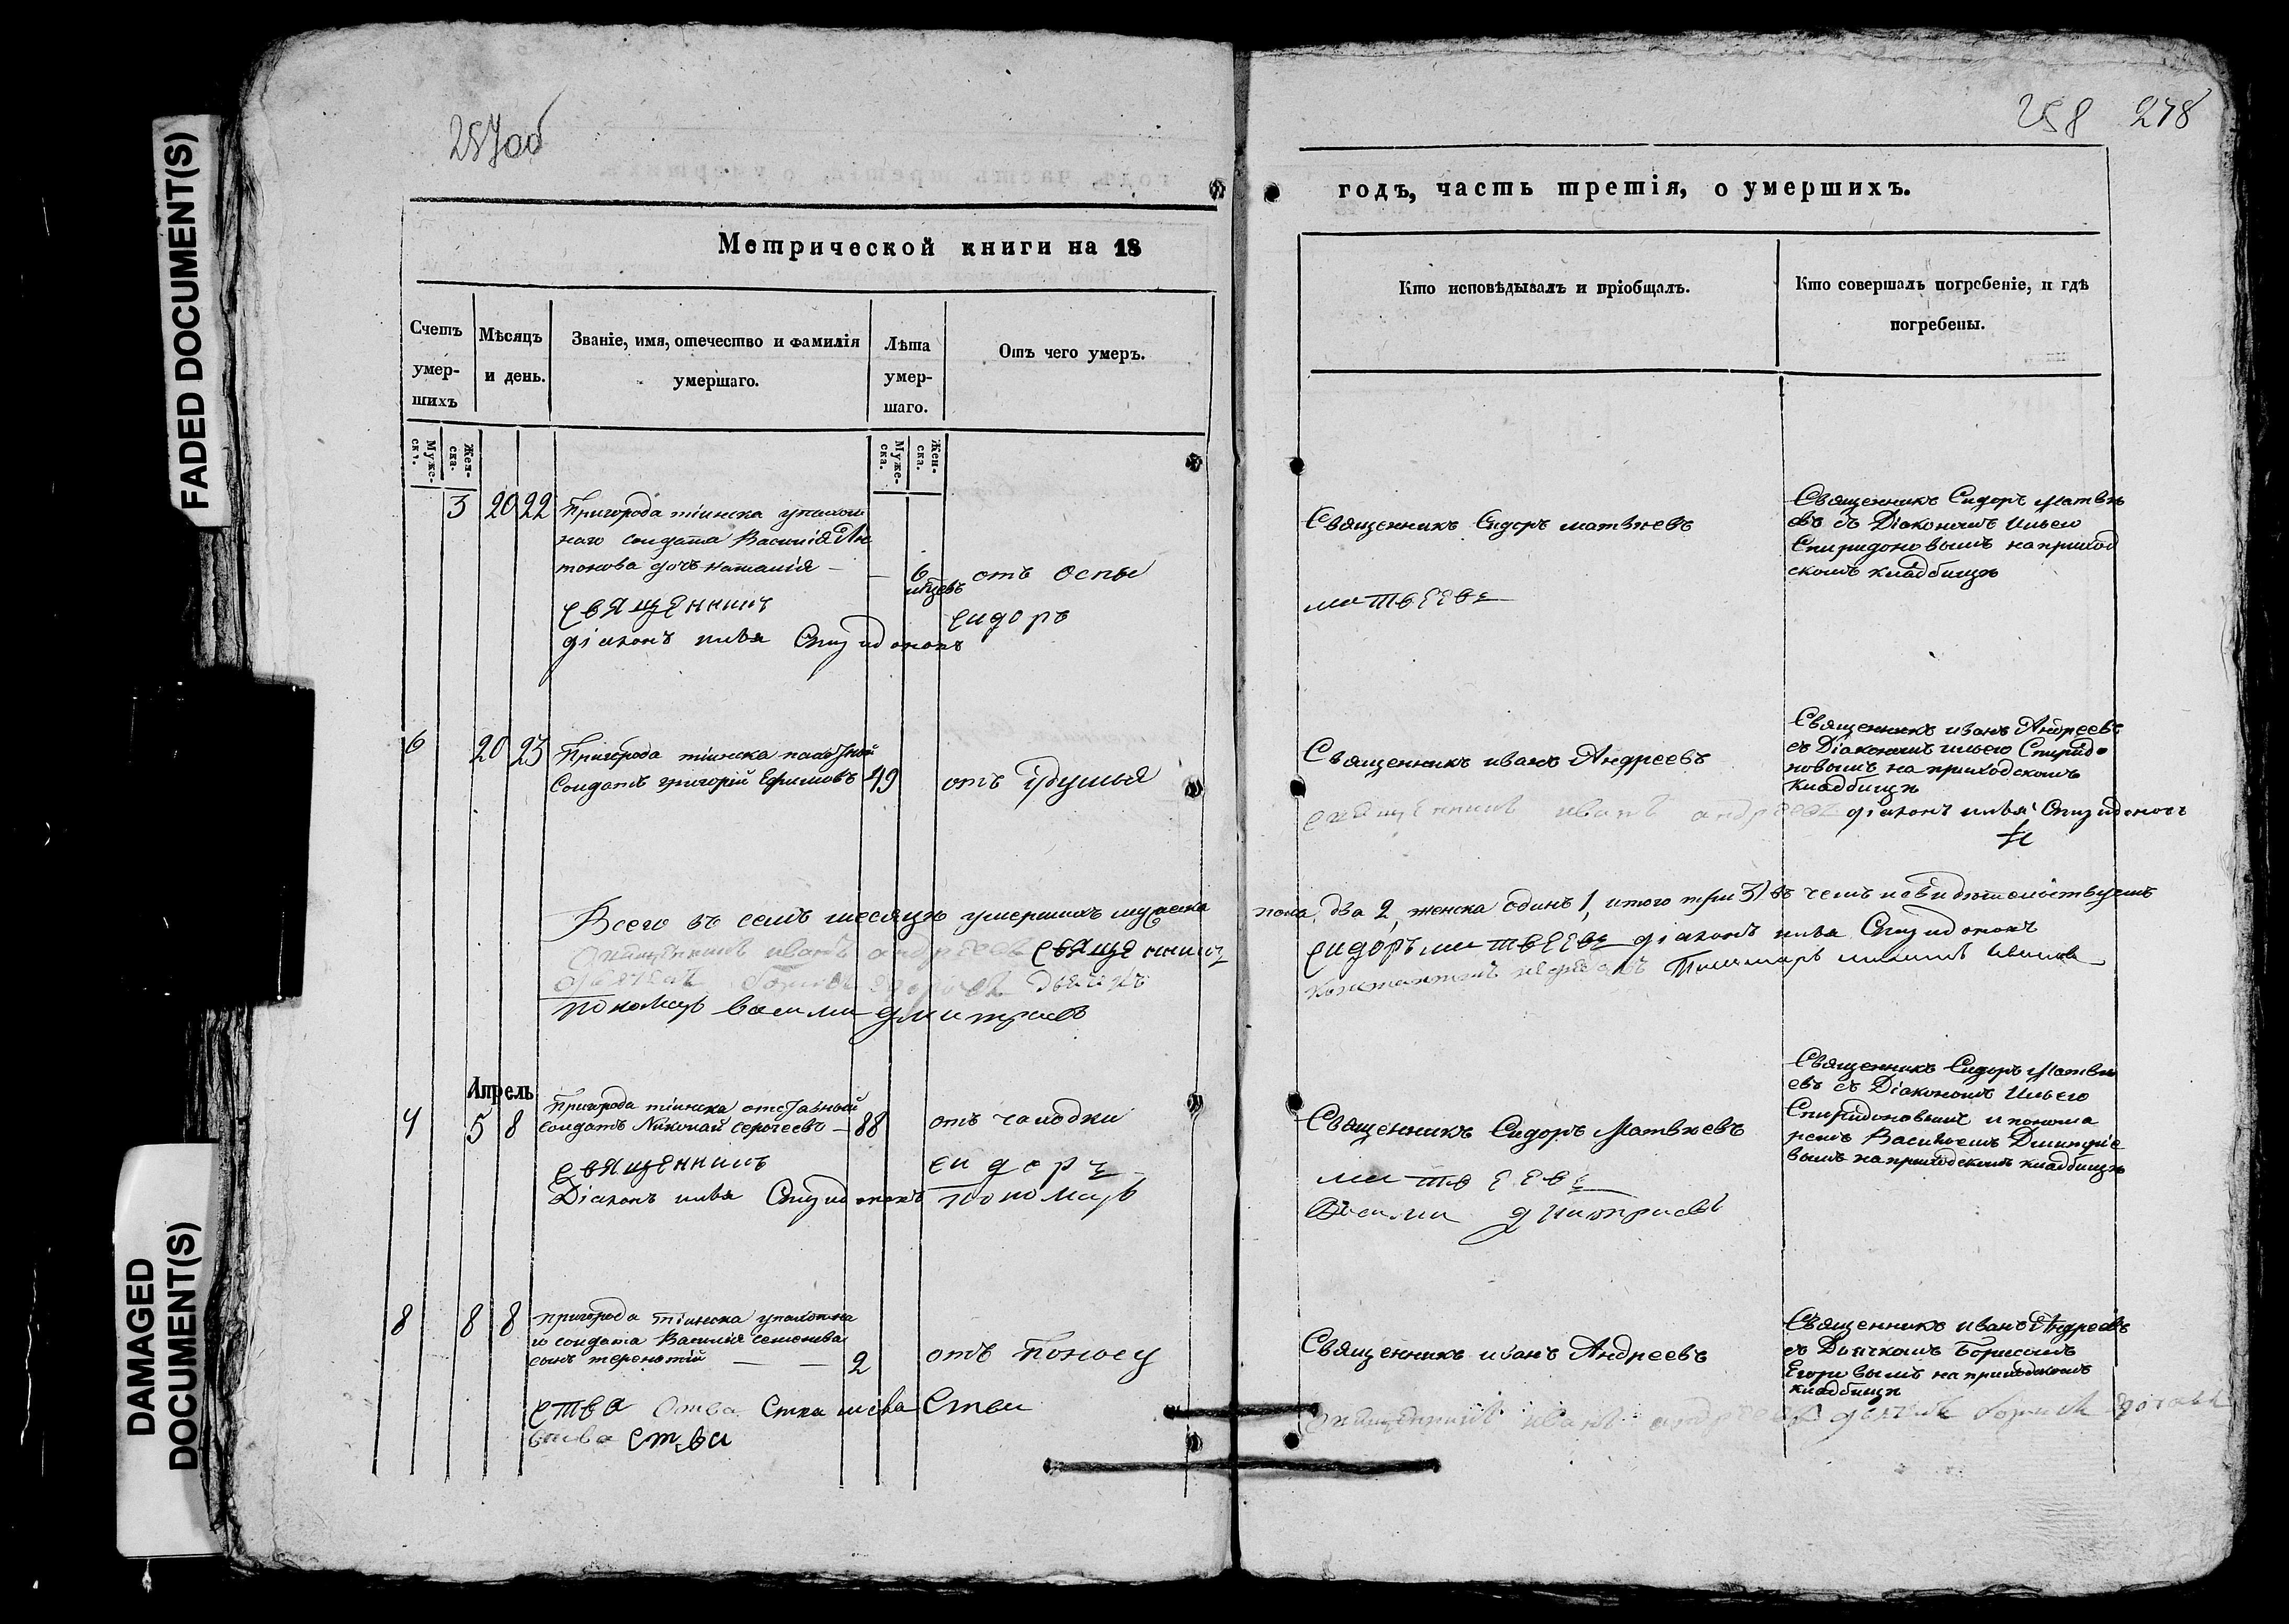 FADED DOCUMENT(S)
DAMAGED
DOCUMENT(S)
257об
Метрической книги на 18
Счетъ
умер-
шихъ
Мѣсяцъ
и день.
Званіе, имя, отечество и фамилія
умершаго.
Лѣта
умер-
шаго.
Отъ чего умеръ.
Муже-
ск.
Жен-
ска.
Муже-
ска.
Жен-
ска.
3 20 22 Пригорода тіинска
наго солдата Василія Ан
тонова дочь наталія — — 6 отъ оспы
мцевъ
священникъ сидоръ
діаконъ илья Спиридоновъ
6 20 23 Пригорода тіинска
Солдатъ григорій Ефимовъ 49 отъ удушья
Всего въ семъ месяцѣ умершихъ мужеска
священникъ иванъ андреевъ священникъ
дьячекъ борисъ егоровъ дьячекъ
пономарь васили дмитриевъ
Апрель
7 5 8 Пригорода тіинска отставный
солдатъ Николай сергеевъ — 88 отъ чахотки
священникъ сидоръ
Діаконъ илья Спиридоновъ пономарь
8 8 8 пригорода тіинска
го солдата Василія семенова
сынъ терентій — — 2 отъ поносу
258 278
годъ, часть третія, о умершихъ.
Кто исповѣдывалъ и пріобщалъ.
Кто совершалъ погребеніе, и гдѣ
погребены.
Священникъ Сидоръ матвѣевъ
матвеевъ
Священникъ Сидоръ Матвѣ
евъ съ Діакономъ Ильею
Спиридоновымъ на приход
скомъ кладбищѣ
Священникъ иванъ Андреевъ
Священникъ иванъ Андреевъ
съ Діакономъ ильею Спиридо
новымъ на приходскомъ
кладбищѣ
священникъ иванъ андреевъ діаконъ илья Спиридоновъ
пола два 2, женска одинъ 1, итого три 3, въ чемъ
сидоръ матвеевъ діаконъ илья Спиридоновъ
Священникъ Сидоръ Матвѣевъ
матвеевъ
Васили дмитриевъ
Священникъ Сидоръ Матвѣ
евъ съ Діакономъ Ильею
Спиридоновымъ и понома
ремъ Василіемъ Димитріе
вымъ на приходскомъ кладбищѣ
Священникъ иванъ Андреевъ
Священникъ иванъ Андреевъ
съ Дьячкомъ Борисомъ
Егоровымъ на приходскомъ
кладбищѣ
священникъ иванъ андреевъ дьячекъ борисъ егоровъ